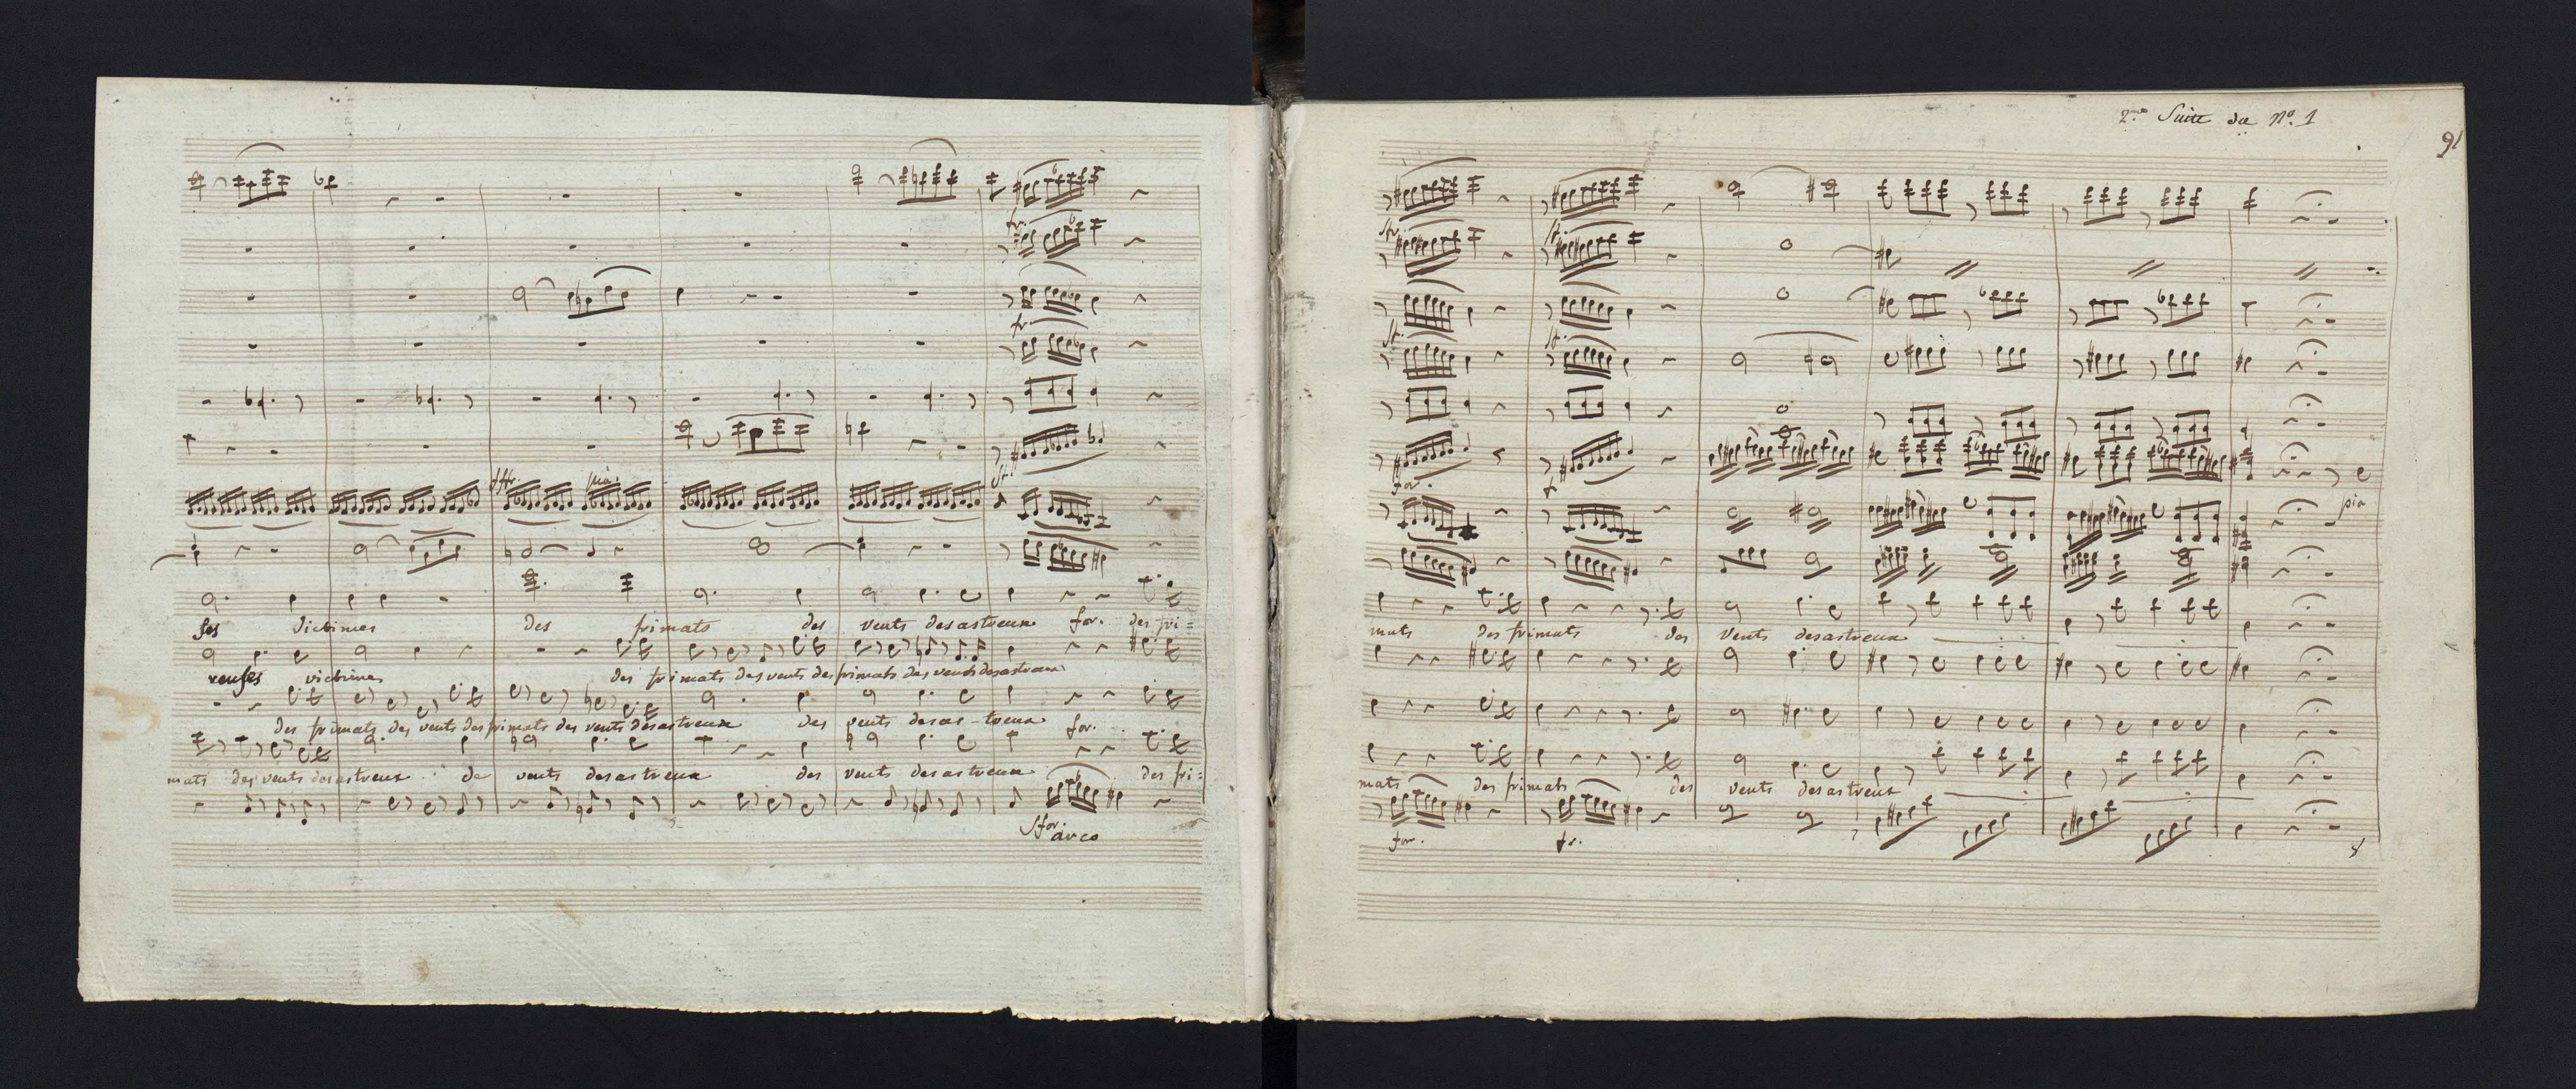 sfr. pia. sf.
ses victimes des frimats des vents desastreux for. des fri=
reuses victimes des frimats des vents des frimats des vents desastreux
des frimats des vents des frimats des vents desastreux des vents desas-treux for.
mats des vents desastreux de vents desastreux des vents desastreux des fri=
sfor.
arco
2.me Suite du No. 1
91
for.
pia
mats des frimats des vents desastreux
mats des frimats des vents desastreux
for. fr.